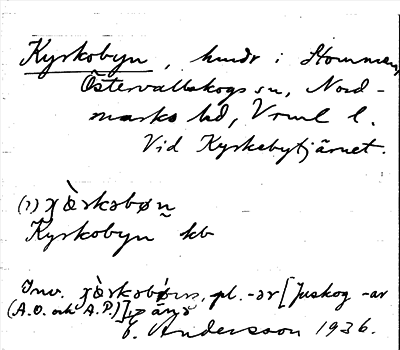 Kyrkobyn, hmdr i Hommen,
Östervallskogs sn, Nord-
marks hd, Vrml l.
Vid Kyrkebytjärnet.
(r)
Kyrkobyn kb
Inv. pl. -ar [Juskog -ar
(A.O. och A.P.)]
E. Andersson 1936.